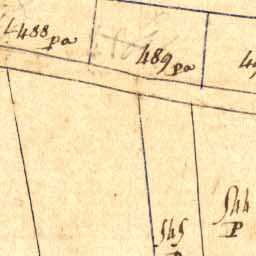 488 pa
489 pa
545
P
544
P